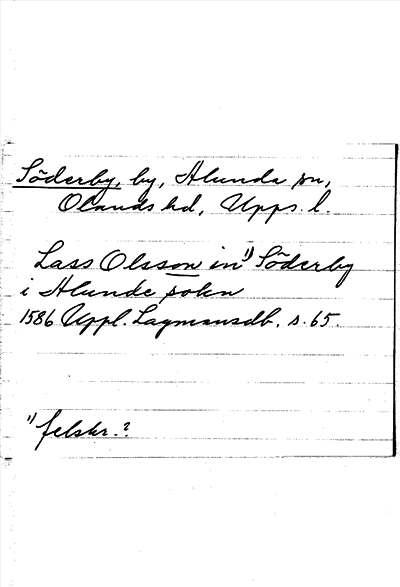 Söderby, by, Alunda sn,
Olands hd, Upps. l.
Lass Olsson in¹⁾ Söderby
i Alunde sokn
1586 Uppl. Lagmansdb. s. 65.
¹⁾ felskr.?